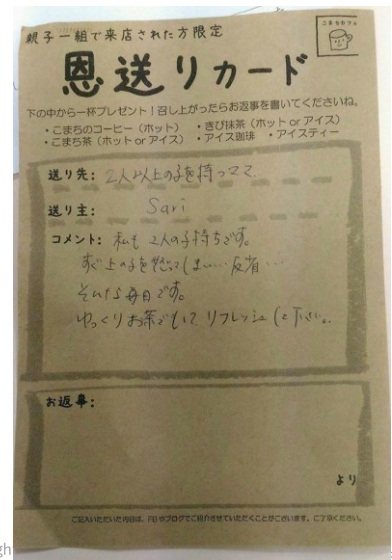 親子一組で来店された方限定
こまちカフェ
恩送りカード
下の中から一杯プレゼント!召し上がったらお返事を書いてくださいね。
・こまちのコーヒー(ホット) ・きび抹茶(ホット or アイス)
・こまち茶(ホット or アイス) ・アイス珈琲 ・アイスティー
送り先: 2人以上の子を持つママ
送り主: Sari
コメント: 私も2人の子持ちです。
すぐ上の子を怒ってしまい…反省…
そんな毎日です。
ゆっくりお茶でもして リフレッシュして下さい。
お返事:
より
ご記入いただいた内容は、FBやブログでご紹介させていただくことがございます。ご了承ください。
gh